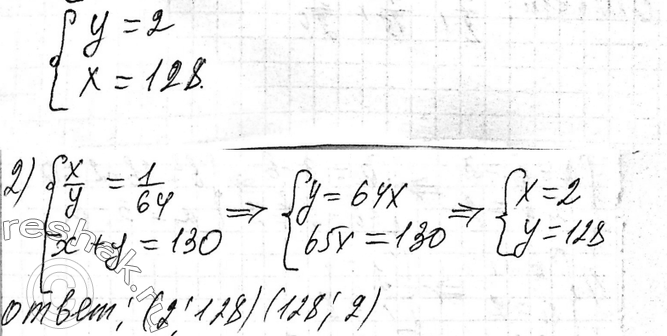 { y = 2
x = 128.
2) { x/y = 1/64
x + y = 130 => { y = 64x
65x = 130 => { x = 2
y = 128
ответ: (2; 128) (128; 2)
reshak.ru